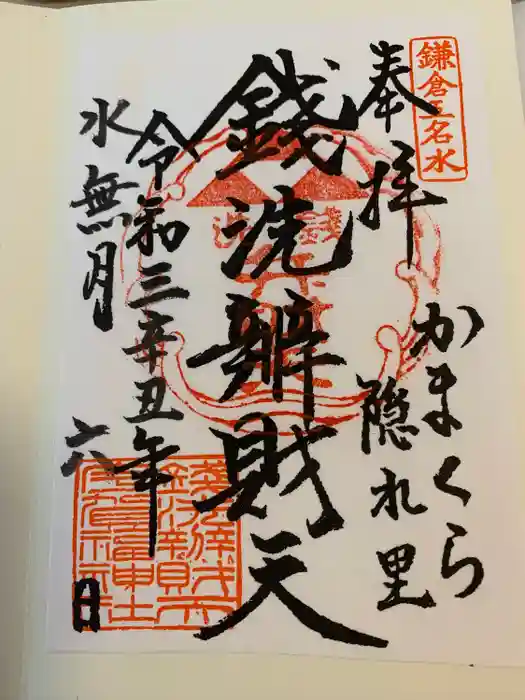 鎌倉五名水
奉拝
かまくら
隠れ里
銭洗
錢洗辧財天
令和三辛丑年
水無月
六日